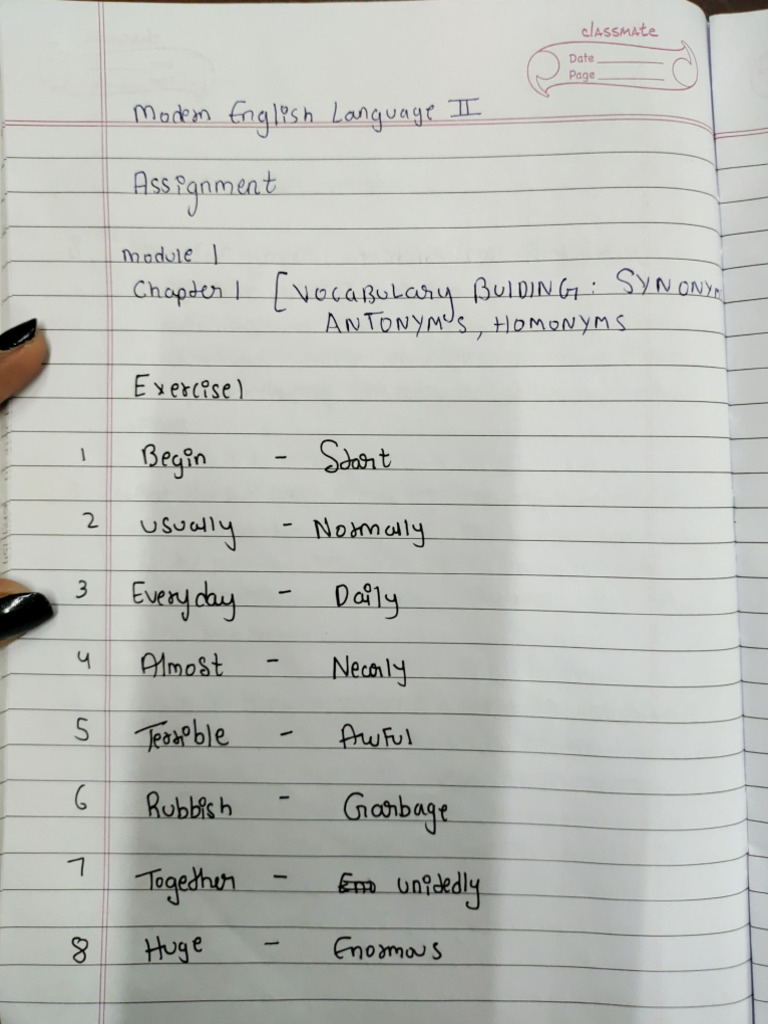 classmate
Date
Page
Modern English Language II
Assignment
Module 1
Chapter 1 [VOCABULARY BUIDING: SYNONYM
ANTONYMS, HOMONYMS
Exercise 1
1 Begin - Start
2 Usually - Normally
3 Everyday - Daily
4 Almost - Nearly
5 Terrible - Awful
6 Rubbish - Garbage
7 Together - unitedly
8 Huge - Enormous